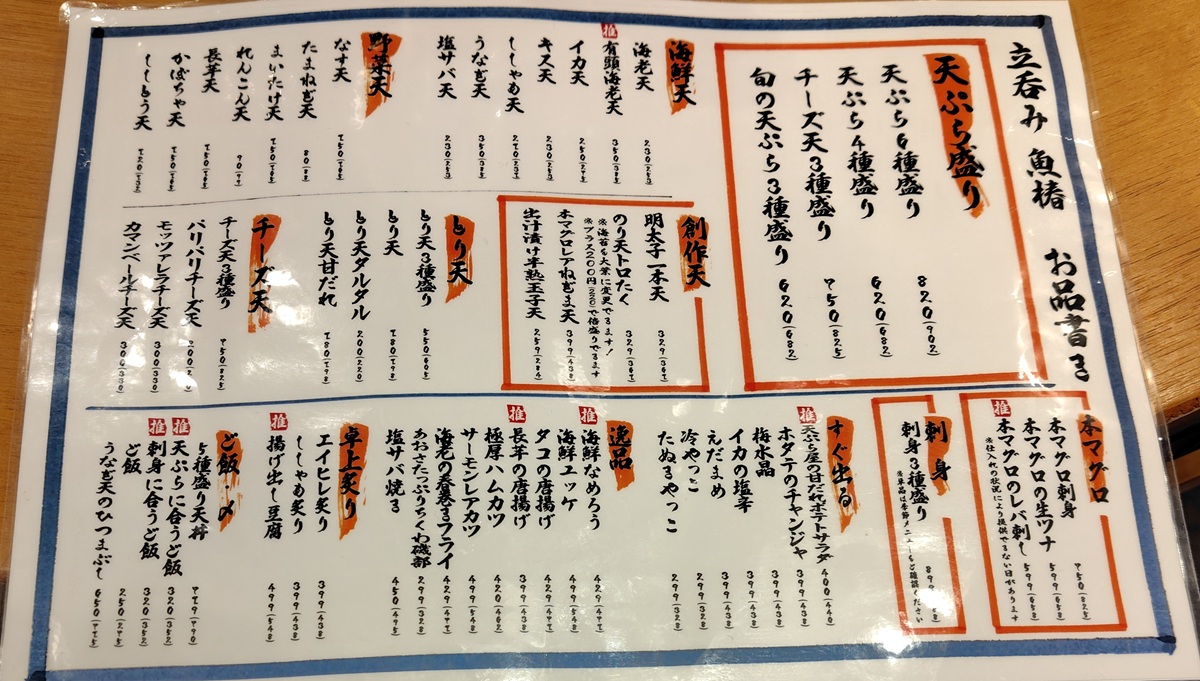 立呑み 魚椿 お品書き
天ぷら盛り
天ぷら6種盛り 820(902)
天ぷら4種盛り 620(682)
チーズ天3種盛り 750(825)
旬の天ぷら3種盛り 620(682)
海鮮天
海老天 230(253)
推 有頭海老天 350(385)
イカ天 250(275)
キス天 230(253)
ししゃも天 270(297)
うなぎ天 350(385)
塩サバ天 230(253)
野菜天
なす天 150(165)
たまねぎ天 80(88)
まいたけ天 150(165)
れんこん天 90(99)
長芋天 150(165)
かぼちゃ天 150(165)
ししとう天 120(132)
創作天
明太子一本天 329(361)
のり天トロたく 329(361)
※海苔を大葉に変更できます!
※プラス200円(220)で倍盛りできます
本マグロレアねぎま天 399(438)
出汁漬け半熟玉子天 259(284)
とり天
とり天3種盛り 550(605)
とり天 180(198)
とり天タルタル 200(220)
とり天甘だれ 180(198)
チーズ天
チーズ天3種盛り 750(825)
パリパリチーズ天 200(220)
モッツァレラチーズ天 300(330)
カマンベールチーズ天 300(330)
本マグロ
本マグロ刺身 750(825)
本マグロの生ツナ 599(658)
推 本マグロのレバ刺し 599(658)
※仕入れの状況により提供できない日があります
刺身
刺身3種盛り
※単品は季節メニューをご確認ください
すぐ出る
推 天ぷら屋の甘だれポテトサラダ 400(440)
ホタテのチャンジャ 399(438)
梅水晶 399(438)
イカの塩辛 399(438)
えだまめ 299(328)
冷やっこ 299(328)
たぬきやっこ 299(328)
逸品
推 海鮮なめろう 429(471)
海鮮ユッケ 429(471)
タコの唐揚げ 429(471)
推 長芋の唐揚げ 399(438)
極厚ハムカツ 420(462)
サーモンレアカツ 499(548)
海老の春巻きフライ 429(471)
あおさたっぷりちくわ磯部 299(328)
塩サバ焼き 450(495)
卓上炙り
エイヒレ炙り 399(438)
ししゃも炙り 399(438)
推 揚げ出し豆腐 499(548)
ご飯〆
5種盛り天丼 719(790)
推 天ぷらに合うど飯 320(352)
推 刺身に合うど飯 320(352)
ど飯 250(275)
うなぎ天のひつまぶし 650(715)